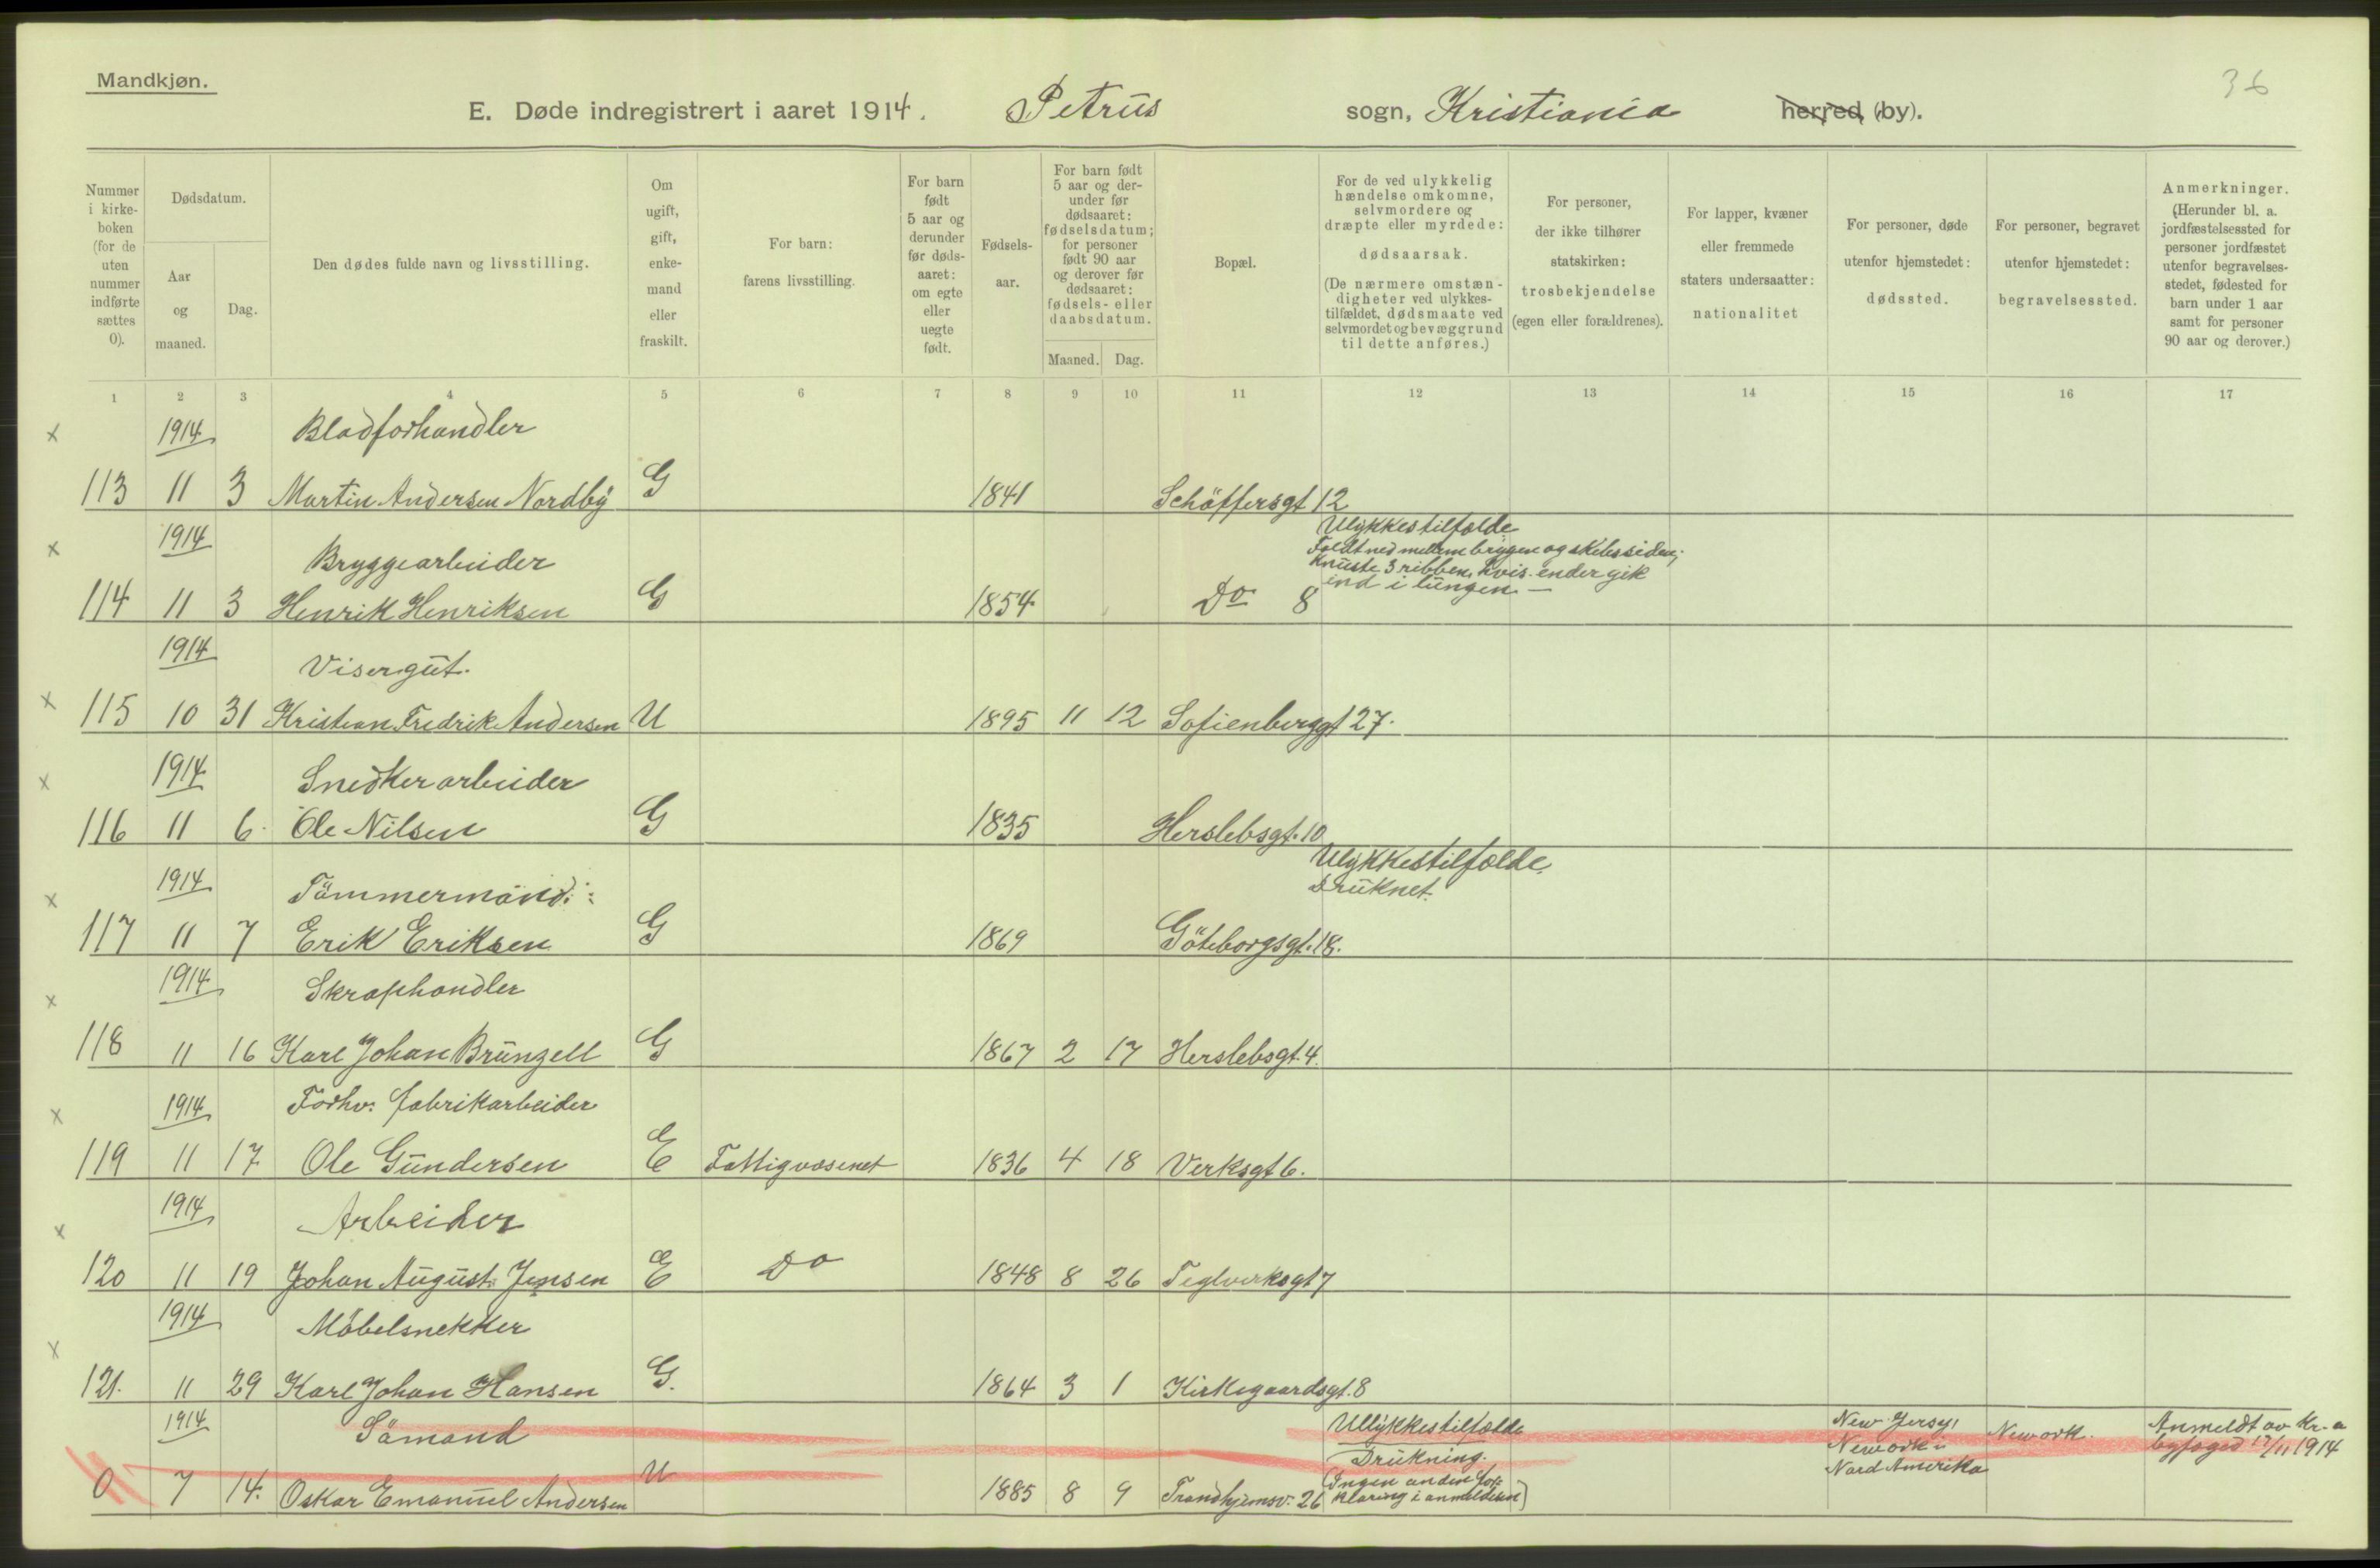 Mandkjøn.
36
E. Døde indregistrert i aaret 1914. Petrus sogn, Kristiania herred (by).
Nummer i kirkeboken (for de uten nummer indførte sættes 0).
Dødsdatum.
Aar og maaned.
Dag.
Den dødes fulde navn og livsstilling.
Om ugift, gift, enkemand eller fraskilt.
For barn: farens livsstilling.
For barn født 5 aar og derunder før dødsaaret: om egte eller uegte født.
Fødselsaar.
For barn født 5 aar og derunder før dødsaaret: fødselsdatum; for personer født 90 aar og derover før dødsaaret: fødsels- eller daabsdatum.
Maaned.
Dag.
Bopæl.
For de ved ulykkelig hændelse omkomne, selvmordere og dræpte eller myrdede: dødsaarsak.
(De nærmere omstændigheter ved ulykkestilfældet, dødsmaate ved selvmordet og bevæggrund til dette anføres.)
For personer, der ikke tilhører statskirken: trosbekjendelse (egen eller forældrenes).
For lapper, kvæner eller fremmede staters undersaatter: nationalitet
For personer, døde utenfor hjemstedet: dødssted.
For personer, begravet utenfor hjemstedet: begravelsessted.
Anmerkninger.
(Herunder bl. a. jordfæstelsessted for personer jordfæstet utenfor begravelsesstedet, fødested for barn under 1 aar samt for personer 90 aar og derover.)
1 2 3 4 5 6 7 8 9 10 11 12 13 14 15 16 17
x 1914 Bladforhandler
113 11 3 Martin Andersen Nordby G 1841 Schäffersgt 12
x 1914 Bryggearbeider
Ulykkestilfælde
Faldt ned mellem bryggen og skibssiden;
Knuste 3 ribben, hvis ender gik
ind i lungen. —
114 11 3 Henrik Henriksen G 1854 Do 8
1914 Visergut.
x 115 10 31 Kristian Fredrik Andersen U 1895 11 12 Sofienberggt 27.
x 1914 Snedkerarbeider
116 11 6. Ole Nilsen G 1835 Herslebsgt. 10
x 1914 Tömmermand: Ulykkestilfælde.
Druknet.
117 11 7 Erik Eriksen G 1869 Göteborgsgt. 18.
x 1914 Skraphandler
118 11 16 Karl Johan Brunzell G 1867 2 17 Herslebsgt. 4.
x 1914 Forhv. fabrikarbeider
119 11 17 Ole Gundersen E Fattigvæsenet 1836 4 18 Verksgt 6.
x 1914 Arbeider
120 11 19 Johan August Jensen E Do 1848 8 26 Teglverksgt 7
1914 Möbelsnekker
x 121. 11 29 Karl Johan Hansen G. 1864 3 1 Kirkegaardsgt. 8
1914 Sömand
Ulykkestilfælde
Drukning.
(Ingen anden forklaring i anmeldelsen)
New Jersy,
Newark i
Nord Amerika
Newark.
Anmeldt av Kr.a
byfoged 17/11 1914
0 7 14. Oskar Emanuel Andersen U 1885 8 9 Trondhjemsv. 26